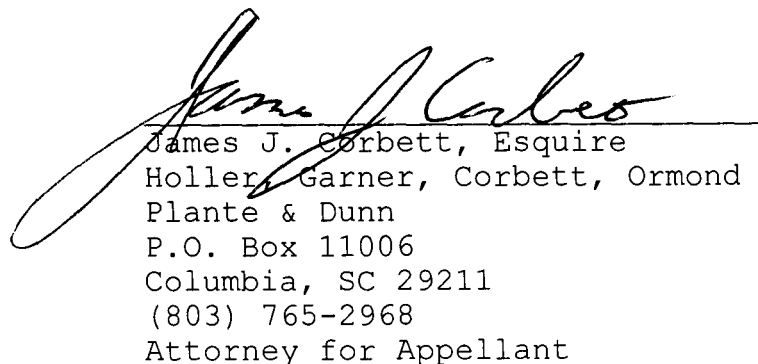 James J Corbett
James J. Corbett, Esquire
Holler, Garner, Corbett, Ormond
Plante & Dunn
P.O. Box 11006
Columbia, SC 29211
(803) 765-2968
Attorney for Appellant